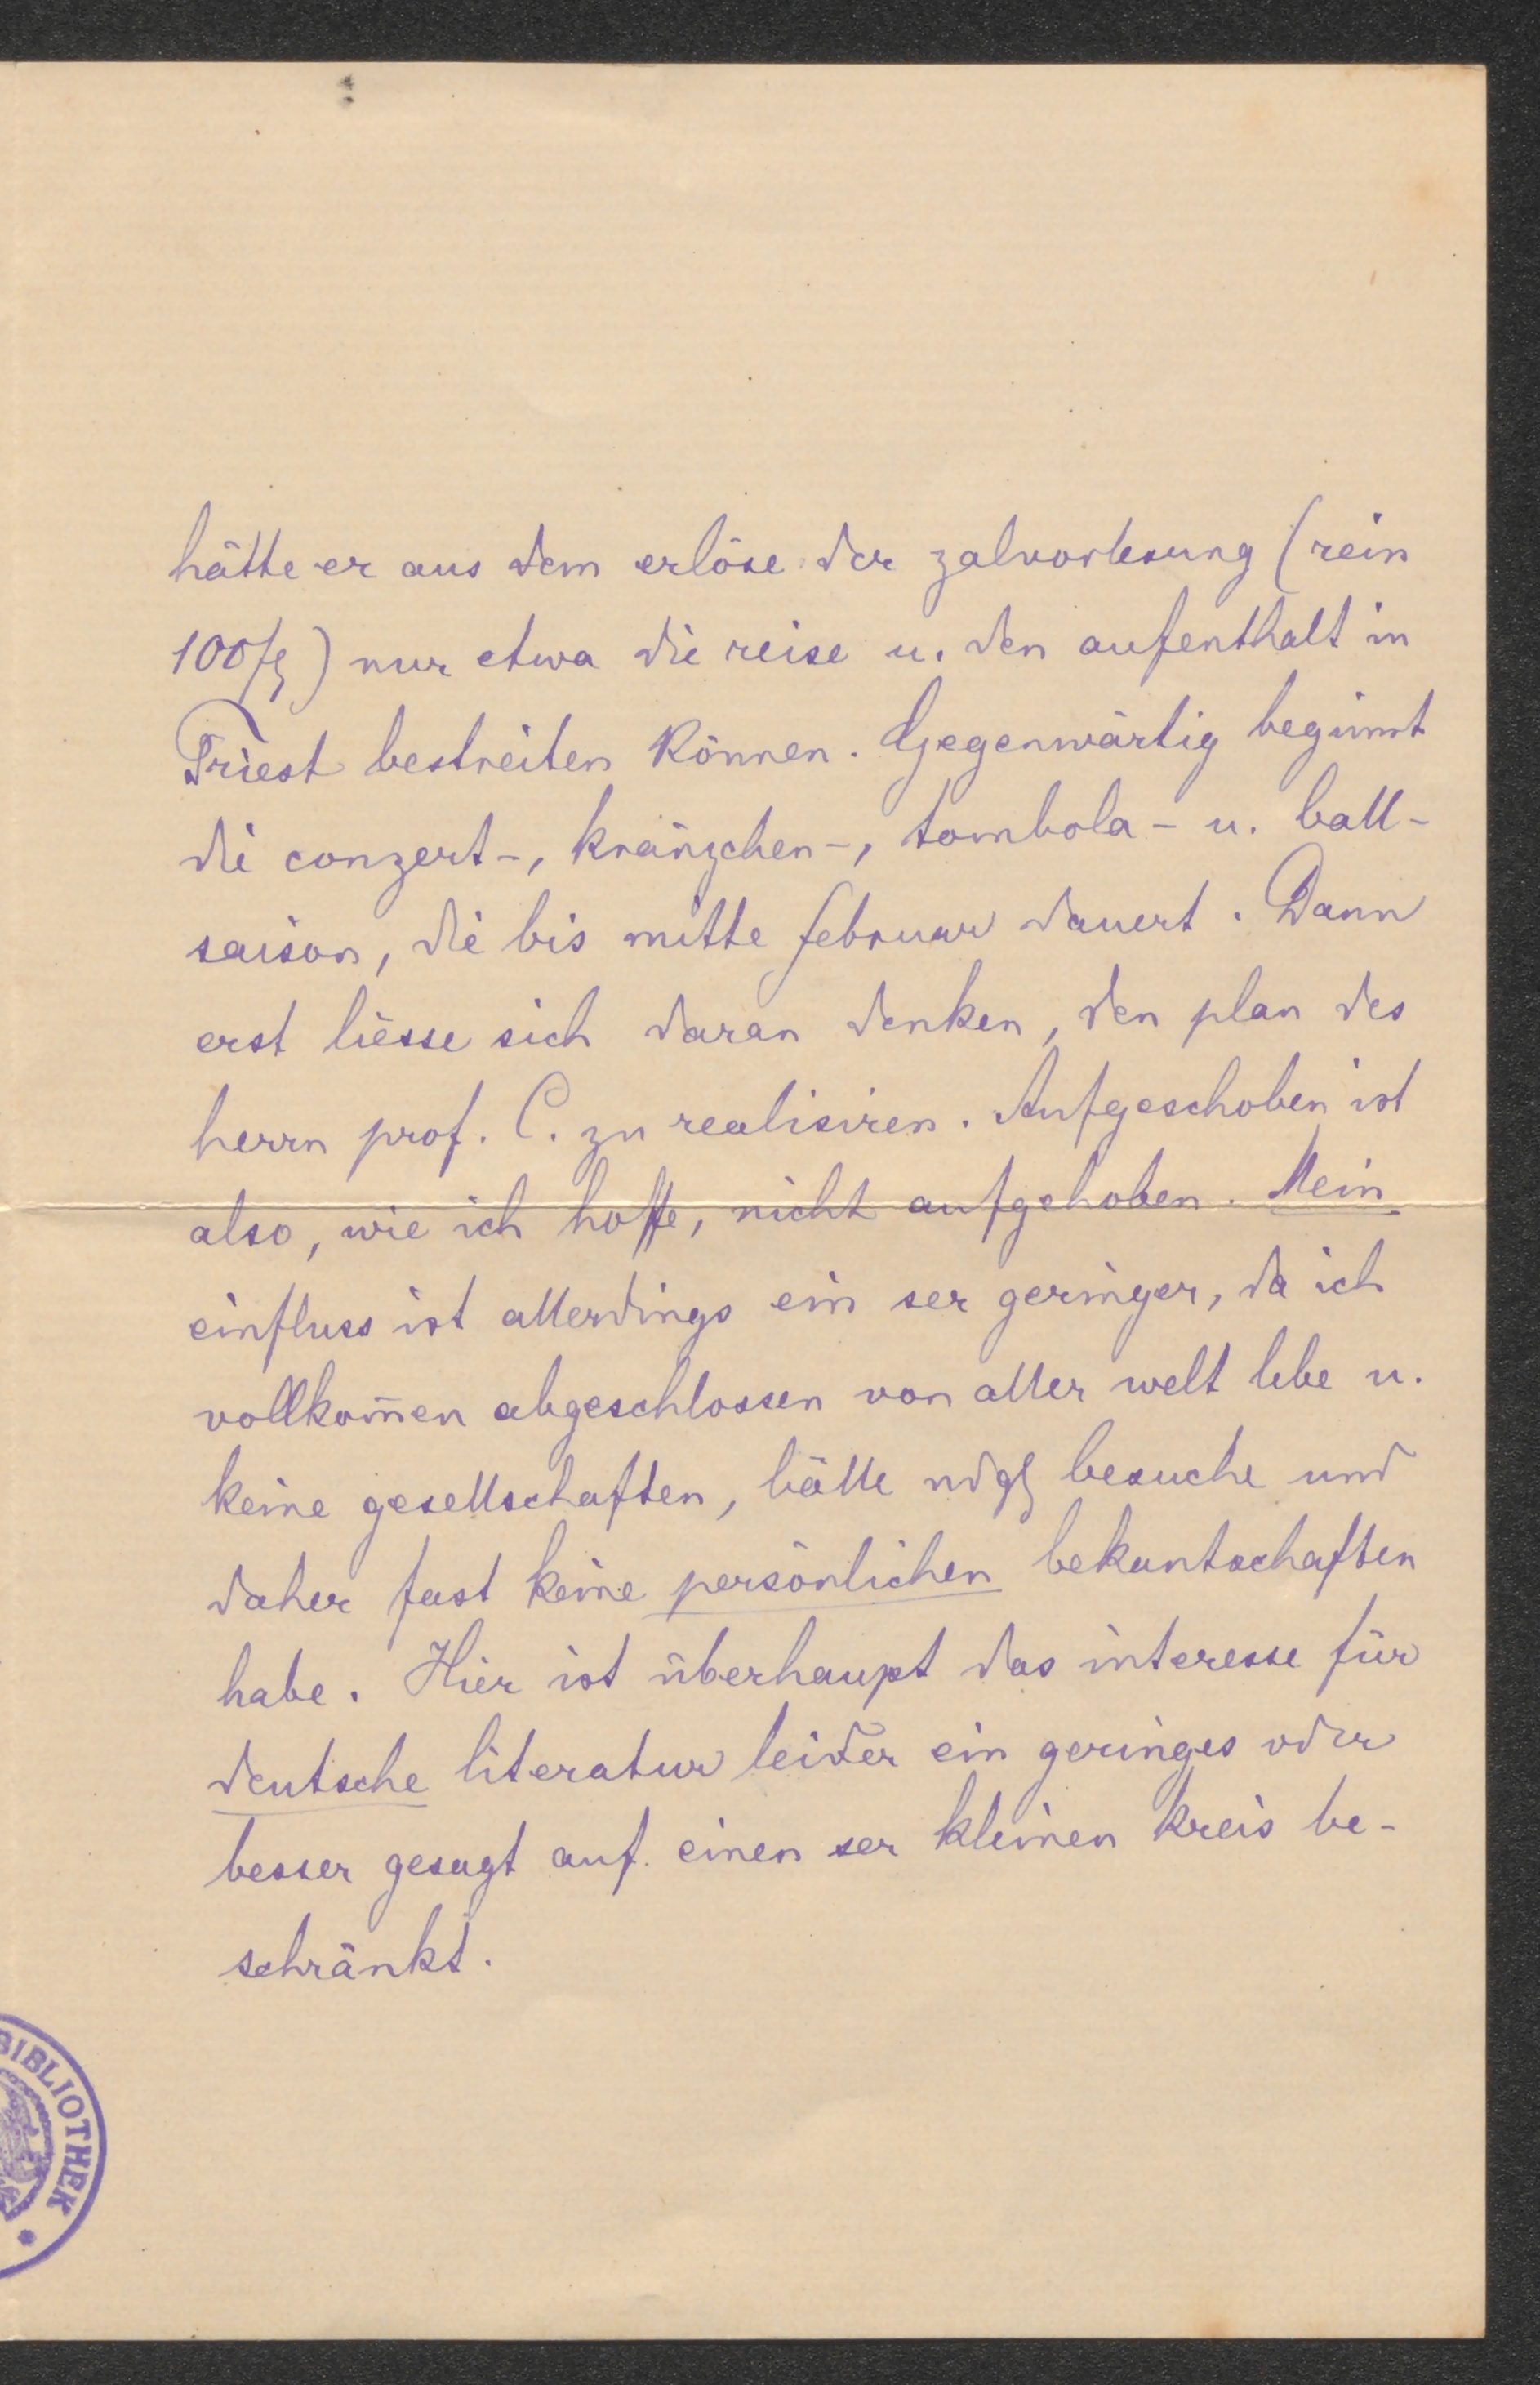 hätte er aus dem erlöse der zalvorlesung (rein
100 fl) nur etwa die reise u. den aufenthalt in
Triest bestreiten können. Gegenwärtig beginnt
die conzert-, kränzchen-, tombola- u. ball-
saison, die bis mitte februar dauert. Dann
erst liesse sich daran denken, den plan des
herrn prof. C. zu realisiren. Aufgeschoben ist
also, wie ich hoffe, nicht aufgehoben. Mein
einfluss ist allerdings ein ser geringer, da ich
vollkom̄en abgeschlossen von aller welt lebe u.
keine gesellschaften, bälle udgl besuche und
daher fast keine persönlichen bekantschaften
habe. Hier ist überhaupt das interesse für
deutsche literatur leider ein geringes oder
besser gesagt auf einen ser kleinen kreis be-
schränkt.
BIBLIOTHEK